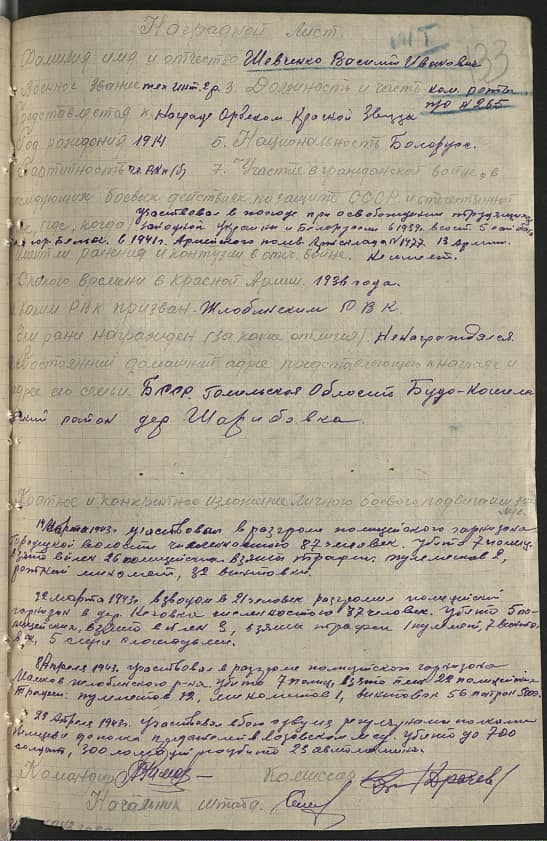 Наградной Лист.
Фамилия имя и отчество Шевченко Василий Иванович
Военное звание тех. инт. 2 р. 3. Должность и часть ком. роты
п/о № 265
Представляется к Награде Орденом Красной Звезда
Год рождения 1914 5. Национальность Белорус.
Партийность 7. Участие в гражданской войне, в
следующих боевых действиях по защите СССР и отечественной
где, когда) участвовал в походе при освобождении трудящихся
Западной Украины и Белорусии в 1939
в 1941 г. Армейского Артсклада № 1477 13 Армии.
ранения и контузии в отеч. войне. Не имеет.
С какого времени в Красной Армии. 1936 года.
Каким РВК призван Жлобинским РВК
Чем ране награжден (за какие отличия) Не награждался.
Постоянный домашний адрес представляющегося к награде и
адрес его семьи. БССР. Гомельская Область Будо-Кошеле
ский район дер Шарибовка.
Краткое и конкретное изложение личного боевого подвига или заслуг.
14 Марта 1943 г. участвовал в разгроме полицейского гарнизона
Городецкой волости численностью 87 человек. Убито 7 полиц.
взято в плен 26 полицейских взято трофеи: пулеметов 2,
ротный миномет, 32 винтовки.
22 марта 1943 г. взводом в 21 человек разгромил полицейский
гарнизон в дер. численностью 37 человек. Убито 5 по-
лицейских, взято в плен 9, взяты трофеи 1 пулемет, 7 винто-
вок, 5 с лошадьми.
8 Апреля 1943 г. участвовал в разгроме полицейского гарнизона
Малков Жлобинского р-на. Убито 7 полиц. взято в плен 22 полицейских
Трофеи: пулеметов 12, минометов 1, винтовок 56 патрон 5000.
29 Апреля 1943 г. Участвовал в бою с двумя регулярными полками
немцев и до полка предателей в лозовском лесу. Убито до 700
солдат, 300 лошадей разбито 23 автомашин.
Командир Комиссар
Начальник штаба.